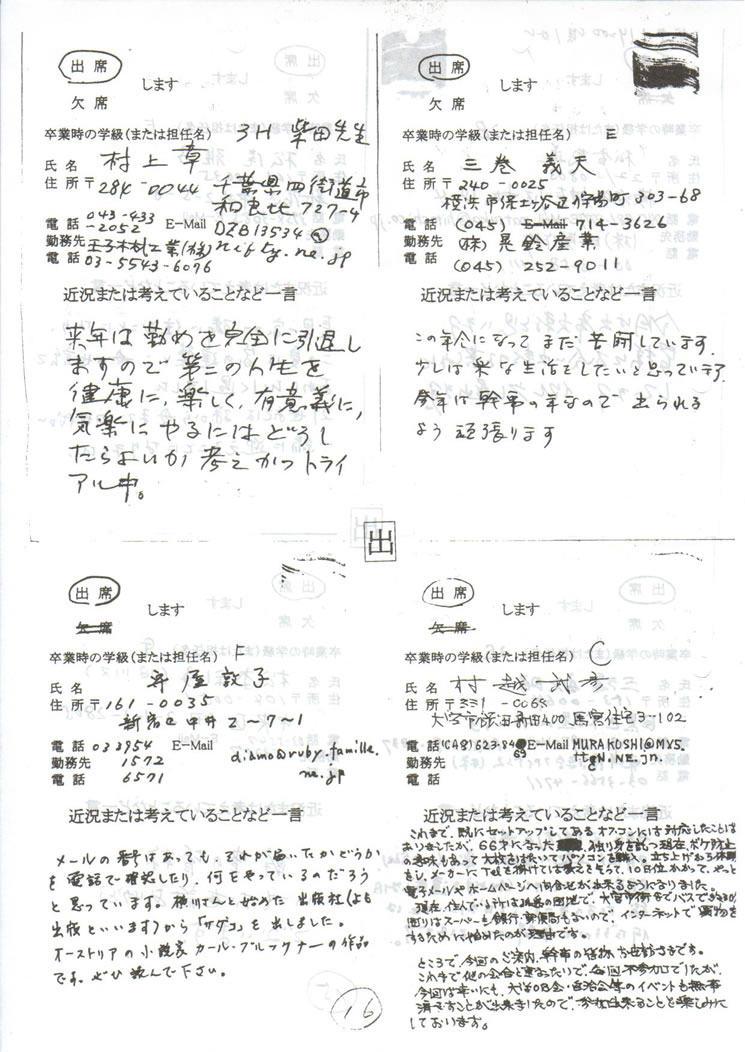 出席
します
欠席
卒業時の学級(または担任名) 3H 柴田先生
氏名 村上 章
住所〒284-0044 千葉県四街道市
和良比 727-4
電話 043-433-2052 E-Mail DZB13534@nifty.ne.jp
勤務先 王子木材工業(株)
電話 03-5543-6096
近況または考えていることなど一言
来年は勤めを完全に引退し
ますので第二の人生を
健康に,楽しく,有意義に,
気楽にやるにはどうし
たらよいか考えかつトライ
アル中。
出席
します
欠席
卒業時の学級(または担任名) E
氏名 三巻 義夫
住所〒240-0025
横浜市保土ヶ谷区狩場町 303-68
電話 (045) E-Mail 714-3626
勤務先 (株)晃鈴産業
電話 (045) 252-9011
近況または考えていることなど一言
この年令になって まだ 苦闘しています.
少しは 楽な生活をしたいと思っています
今年は幹事の年なので 出られる
よう 頑張ります
出
出席
します
欠席
卒業時の学級(または担任名) F
氏名 敦子
住所〒161-0035
新宿区中井 2〜7〜1
電話 033954 E-Mail diamo@ruby.famille.
勤務先 1572 ne.jp
電話 6571
近況または考えていることなど一言
メールの番号はあっても、それが届いたかどうか
を電話で確認したり、何をやっているのだろう
と思っています。横川さんと始めた出版社(よも
出版といいます)から「サダコ」を出しました。
オーストリアの小説家カール・ブルックナーの作品
です。ぜひ読んで下さい。
出席
します
欠席
卒業時の学級(または担任名) C
氏名 村越 武彦
住所〒331-0065
大宮市飯田新田400 県営住宅3-102
電話 (048)623-8469 E-Mail MURAKOSHI@MVS.
勤務先
電話
近況または考えていることなど一言
これまで、既にセットアップしてあるオフコンには対応したことは
ありましたが、66才になった 独り身を託つ現在、ボケ防止
の意味もあって大枚をはたいてパソコンを購入。立ち上げから体験
をし、メーカーにTelを掛けては教えを乞って、10日位かかって、やっと
電子メールやホームページへ問合せが出来るようになりました。
現在住んでいる所は孤島の団地で、大宮市街までバスで
回りはスーパーも銀行,郵便局もないので、インターネットで買物を
するために始めたのが理由です。
ところで、今回のご案内、幹事の皆様ご苦労さまです。
これまで他の会合と重なったりで、毎回不参加でしたが、
今回は幸いにも、大学OB会・自治会等のイベントも無事
済ますことが出来ましたので、参加出来ることを楽しみに
しております。
16